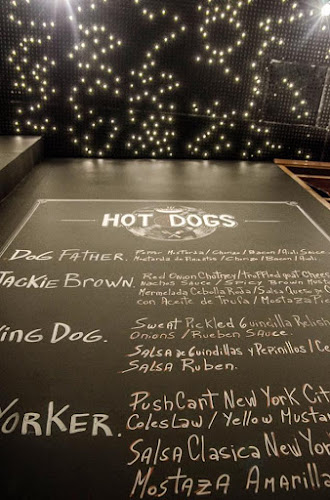 HOT DOGS
DOG FATHER. Bacon / Aioli Sauce
Bacon / Aioli.
JACKIE BROWN. Red Onion Chutney / Truffled goat Chees
Nachos Sauce / Spicy Brown Must
Mermelada Cebolla Roja / Salsa Queso
con Aceite de Trufa / Mostaza Pic
ing Dog. Sweat Pickled Guindilla Relish
Onions / Rueben Sauce.
Salsa de Guindillas y Pepinillos / Ce
Salsa Ruben.
YORKER. PushCart New York City
Coleslaw / Yellow Musta
Salsa Clasica New Yor
Mostaza Amarilla